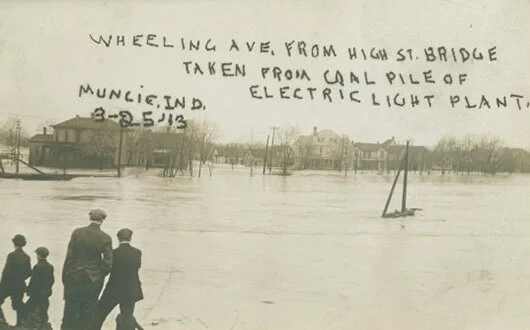 WHEELING AVE. FROM HIGH ST. BRIDGE
TAKEN FROM COAL PILE OF
ELECTRIC LIGHT PLANT.
MUNCIE, IND.
3-25-13